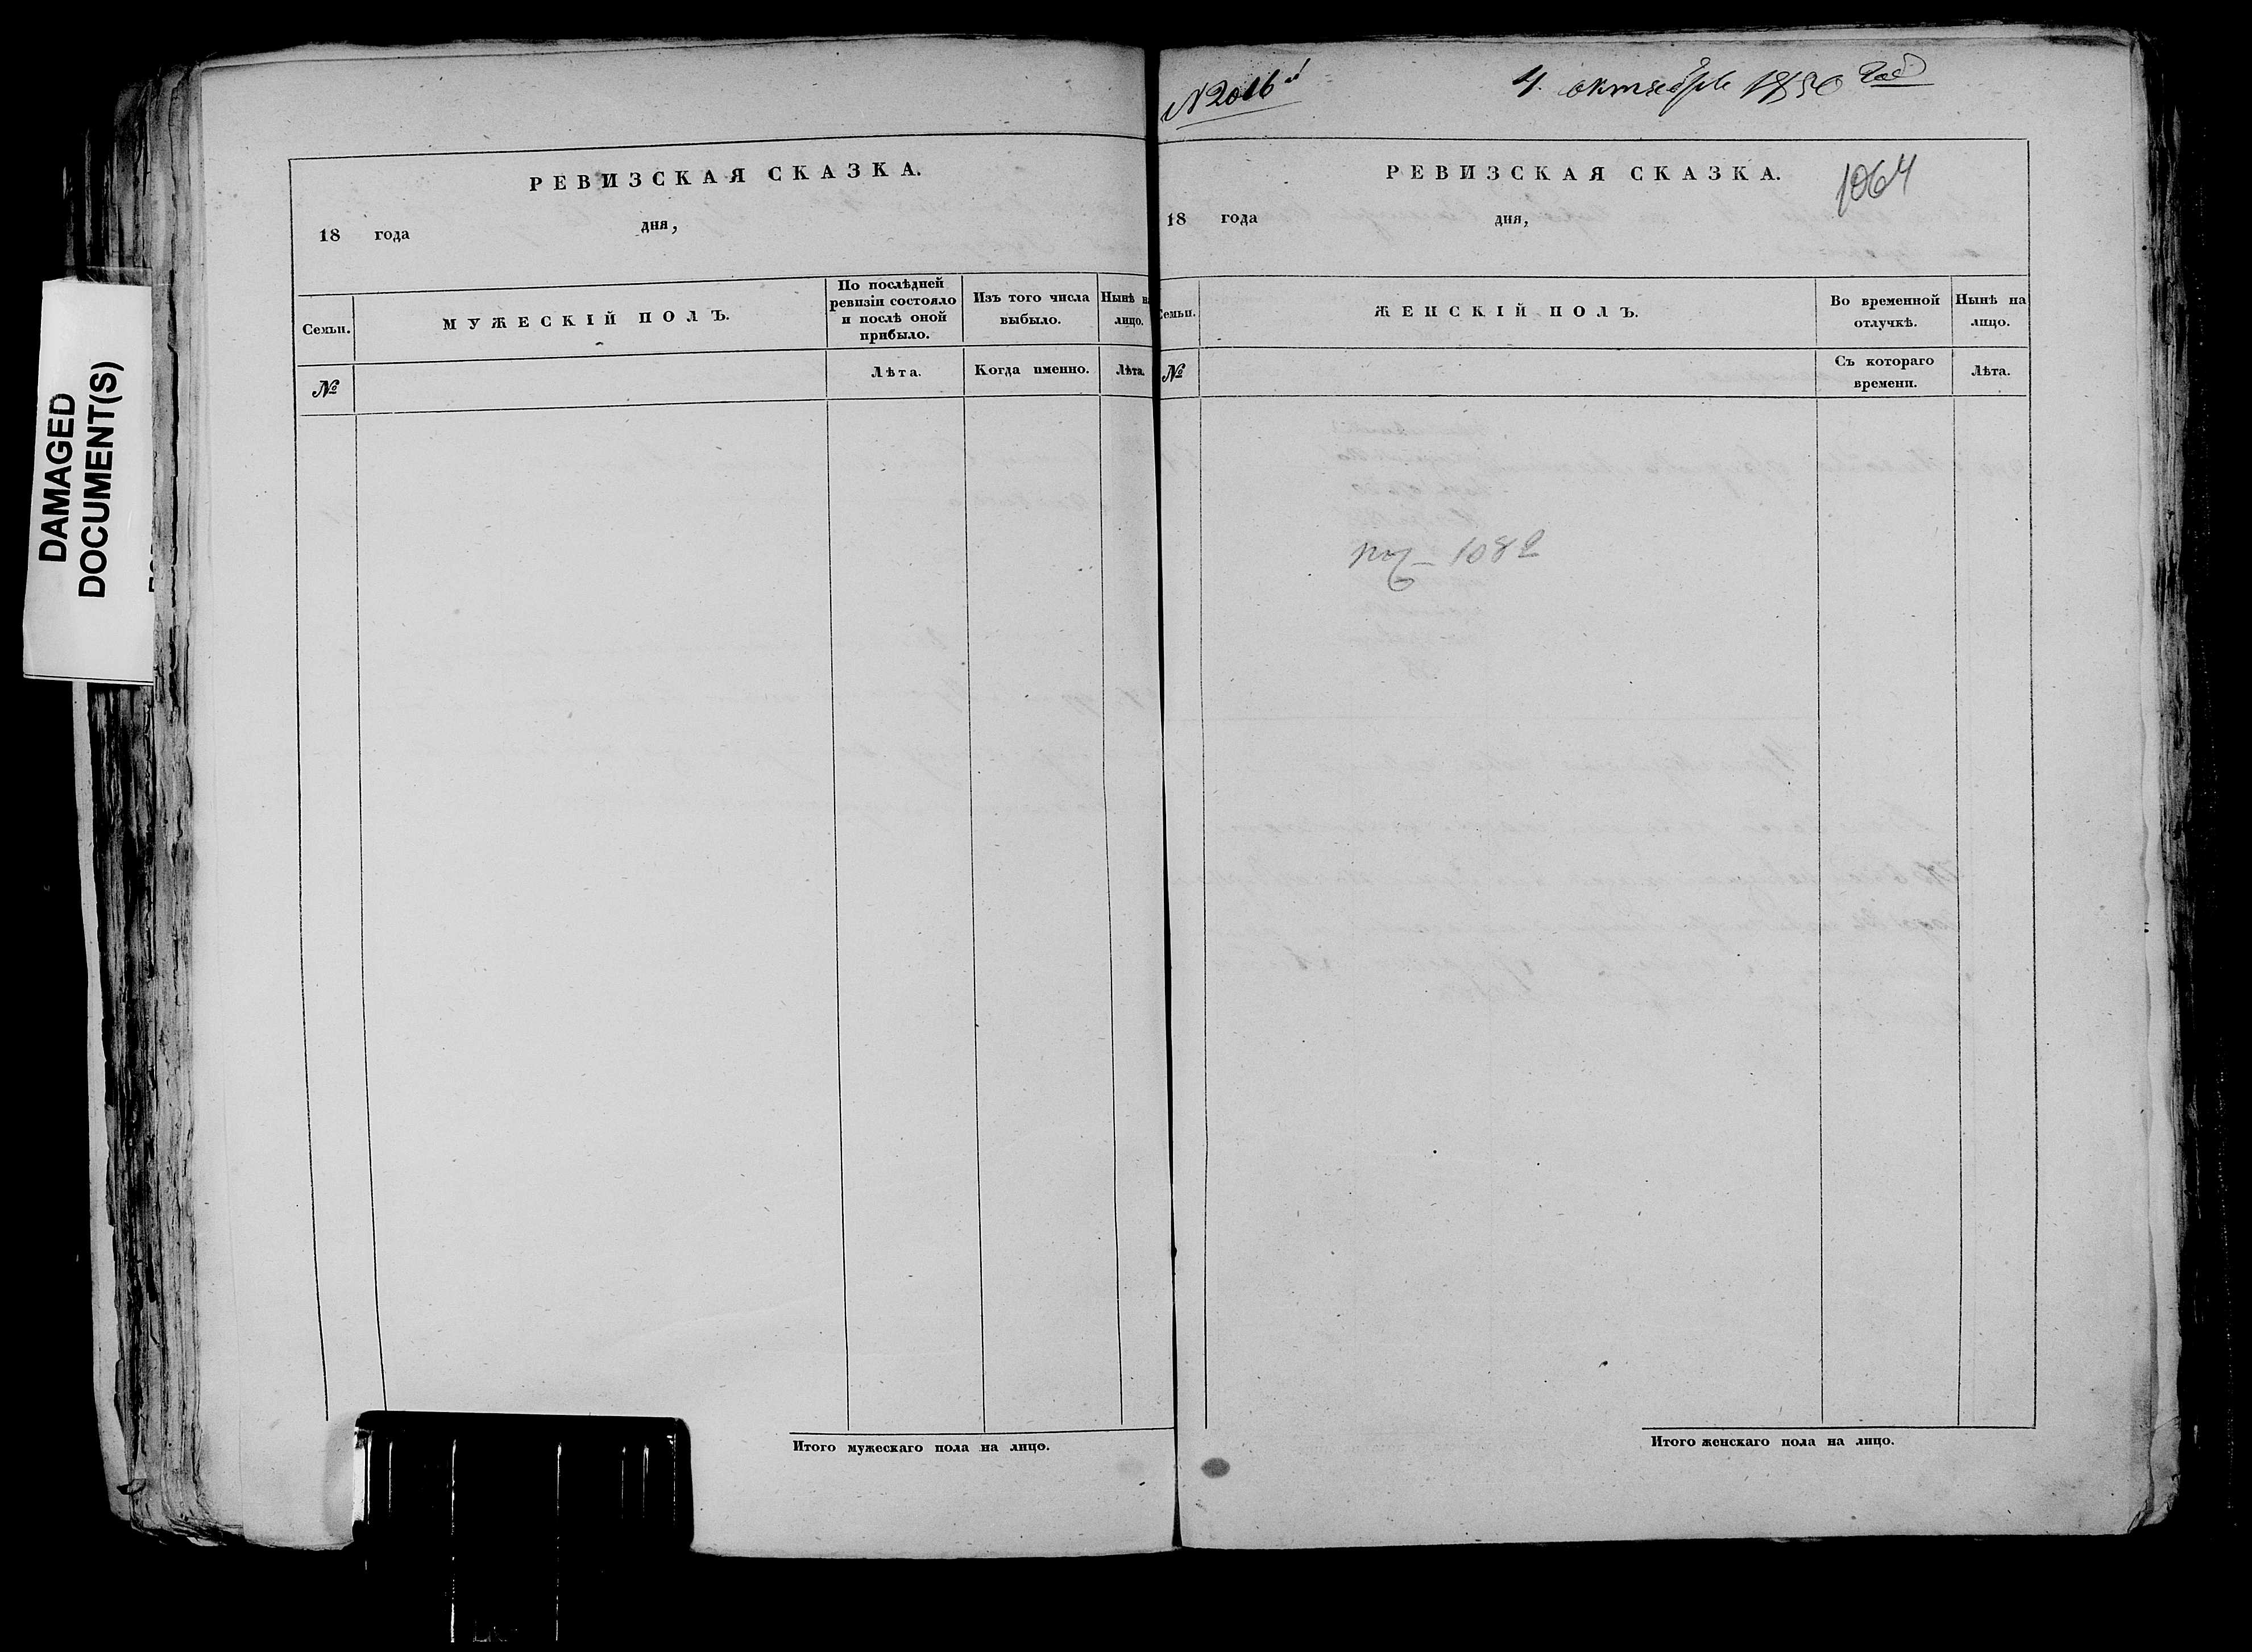 DAMAGED
DOCUMENT(S)
РЕВИЗСКАЯ СКАЗКА.
18 года дня,
Семьи.
МУЖЕСКІЙ ПОЛЪ.
По послѣдней
ревизіи состояло
и послѣ оной
прибыло.
Изъ того числа
выбыло.
Нынѣ на
лицо.
№
Лѣта.
Когда именно.
Лѣта.
Итого мужескаго пола на лицо.
№ 2016й
4. октября 1850 год
РЕВИЗСКАЯ СКАЗКА.
1064
18 года дня,
Семьи.
ЖЕНСКІЙ ПОЛЪ.
Во временной
отлучкѣ.
Нынѣ на
лицо.
№
Съ котораго
времени.
Лѣта.
1082
Итого женскаго пола на лицо.